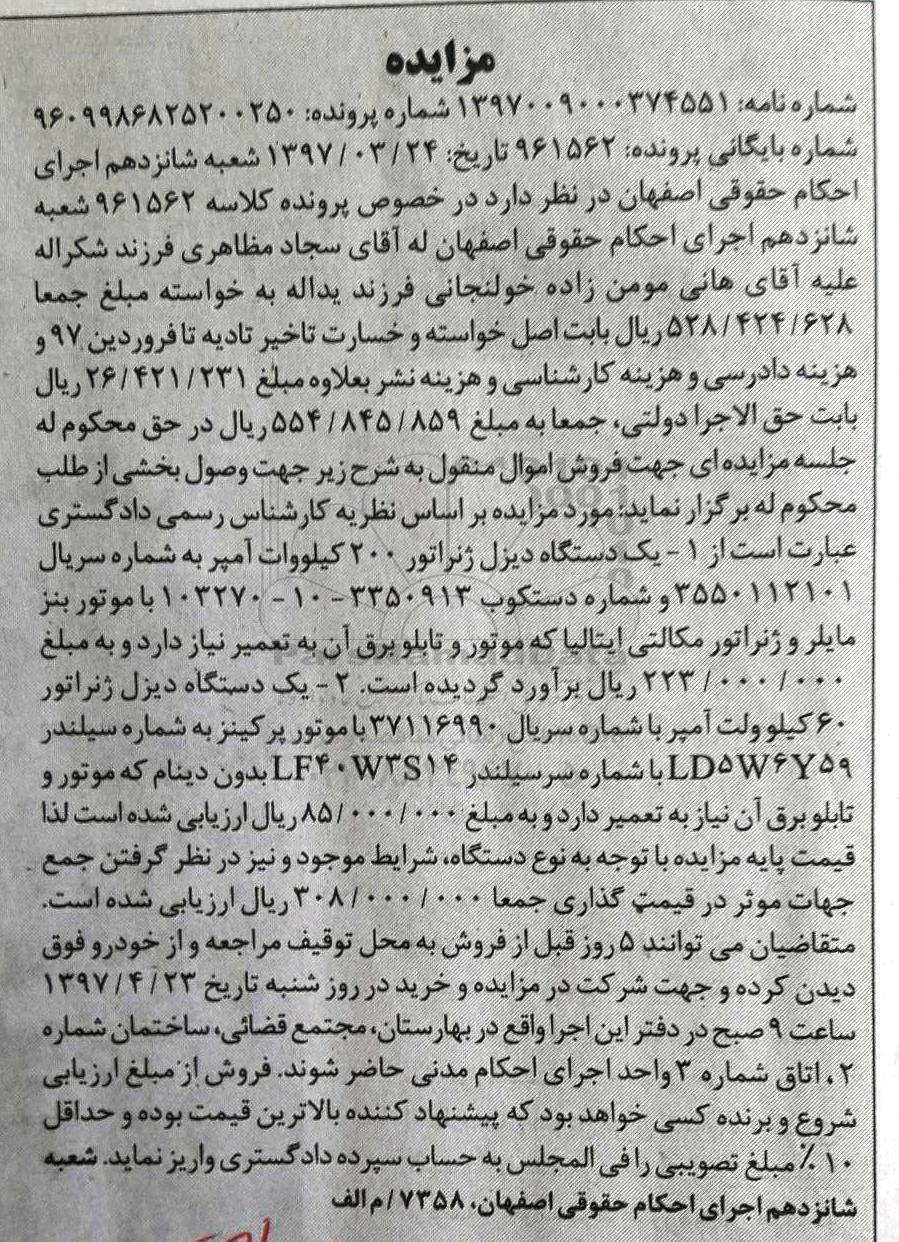 مزایده
شماره نامه: ۱۳۹۷۰۰۹۰۰۰۳۷۴۵۵۱ شماره پرونده: ۹۶۰۹۹۸۶۸۲۵۲۰۰۲۵۰
شماره بایگانی پرونده: ۹۶۱۵۶۲ تاریخ: ۱۳۹۷/۰۳/۲۴ شعبه شانزدهم اجرای
احکام حقوقی اصفهان در نظر دارد در خصوص پرونده کلاسه ۹۶۱۵۶۲ شعبه
شانزدهم اجرای احکام حقوقی اصفهان له آقای سجاد مظاهری فرزند شکراله
علیه آقای هانی مومن زاده خولنجانی فرزند یداله به خواسته مبلغ جمعا
۵۲۸/۴۲۴/۶۲۸ ریال بابت اصل خواسته و خسارت تاخیر تادیه تا فروردین ۹۷ و
هزینه دادرسی و هزینه کارشناسی و هزینه نشر بعلاوه مبلغ ۲۶/۴۲۱/۲۳۱ ریال
بابت حق الاجرا دولتی، جمعا به مبلغ ۵۵۴/۸۴۵/۸۵۹ ریال در حق محکوم له
جلسه مزایده ای جهت فروش اموال منقول به شرح زیر جهت وصول بخشی از طلب
محکوم له برگزار نماید؛ مورد مزایده بر اساس نظریه کارشناس رسمی دادگستری
عبارت است از ۱ - یک دستگاه دیزل ژنراتور ۲۰۰ کیلووات آمپر به شماره سریال
۳۵۵۰۱۱۲۱۰۱ و شماره دستکوب ۳۳۵۰۹۱۳ - ۱۰ - ۱۰۳۲۷۰ با موتور بنز
مایلر و ژنراتور مکالتی ایتالیا که موتور و تابلو برق آن به تعمیر نیاز دارد و به مبلغ
۲۲۳/۰۰۰/۰۰۰ ریال برآورد گردیده است. ۲ - یک دستگاه دیزل ژنراتور
۶۰ کیلو ولت آمپر با شماره سریال ۳۷۱۱۶۹۹۰ با موتور پرکینز به شماره سیلندر
LD۵W۶Y۵۹ با شماره سرسیلندر LF۴۰W۳S۱۴ بدون دینام که موتور و
تابلو برق آن نیاز به تعمیر دارد و به مبلغ ۸۵/۰۰۰/۰۰۰ ریال ارزیابی شده است لذا
قیمت پایه مزایده با توجه به نوع دستگاه، شرایط موجود و نیز در نظر گرفتن جمع
جهات موثر در قیمت گذاری جمعا ۳۰۸/۰۰۰/۰۰۰ ریال ارزیابی شده است.
متقاضیان می توانند ۵ روز قبل از فروش به محل توقیف مراجعه و از خودرو فوق
دیدن کرده و جهت شرکت در مزایده و خرید در روز شنبه تاریخ ۱۳۹۷/۴/۲۳
ساعت ۹ صبح در دفتر این اجرا واقع در بهارستان، مجتمع قضائی، ساختمان شماره
۲، اتاق شماره ۳ واحد اجرای احکام مدنی حاضر شوند. فروش از مبلغ ارزیابی
شروع و برنده کسی خواهد بود که پیشنهاد کننده بالاترین قیمت بوده و حداقل
۱۰٪ مبلغ تصویبی را فی المجلس به حساب سپرده دادگستری واریز نماید. شعبه
شانزدهم اجرای احکام حقوقی اصفهان، ۷۳۵۸/م الف